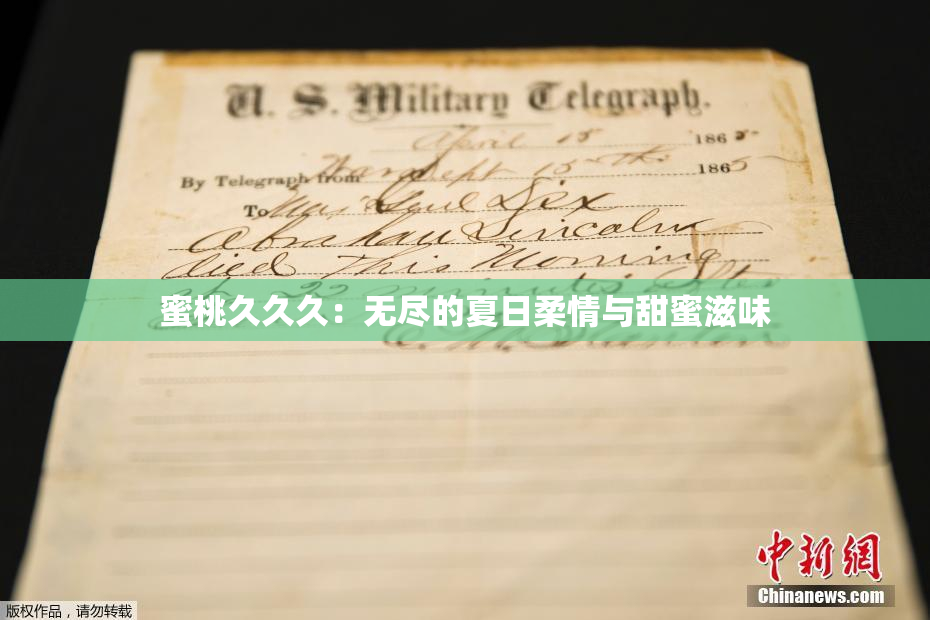 U. S. Military Telegraph.
April 15 1865
By Telegraph from War Dept 15th 1865
To Maj Genl Dix
Abraham Lincoln
died This Morning
at 22 minutes after
蜜桃久久久：无尽的夏日柔情与甜蜜滋味
E. M. Stanton
中新网
Chinanews.com
版权作品，请勿转载